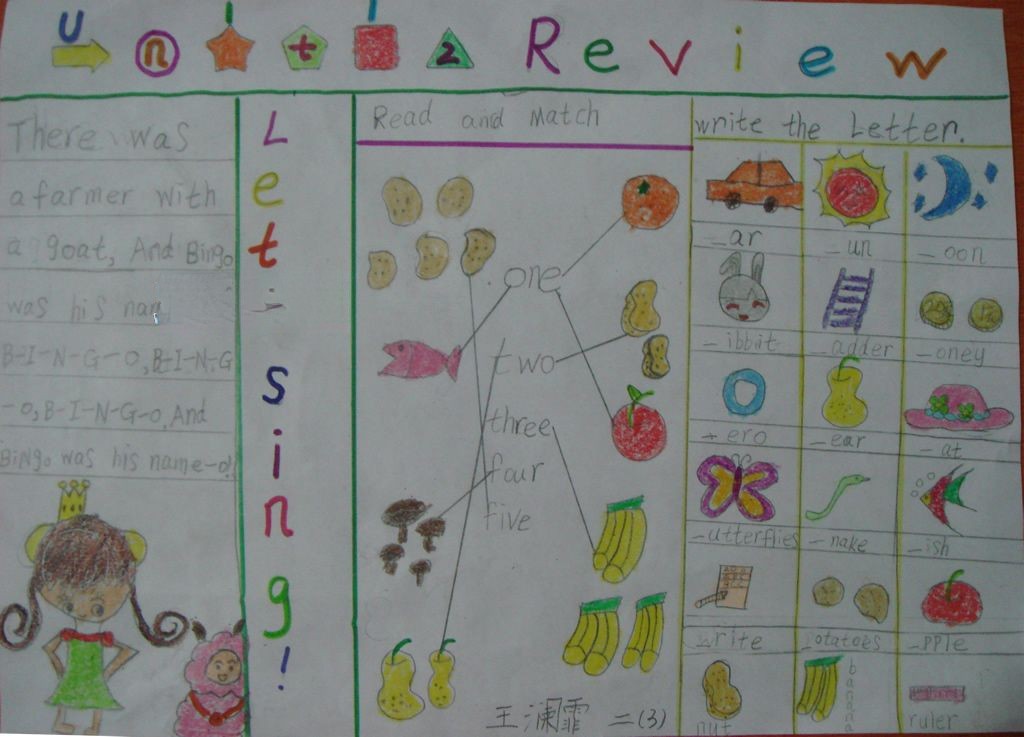 Unit 2 Review
There was
a farmer with
a goat, And Bingo
was his nam
B-I-N-G-O, B-I-N-G
-o, B-I-N-G-o, And
BiNgo was his name-o!
Let's sing!
Read and Match
one
two
three
four
five
王澜霏 二(3)
write the Letter.
_ar
_un
_oon
_ibbit
_adder
_oney
_ero
_ear
_at
_utterflies
_nake
_ish
_write
_otatoes
_pple
nut
banana
ruler